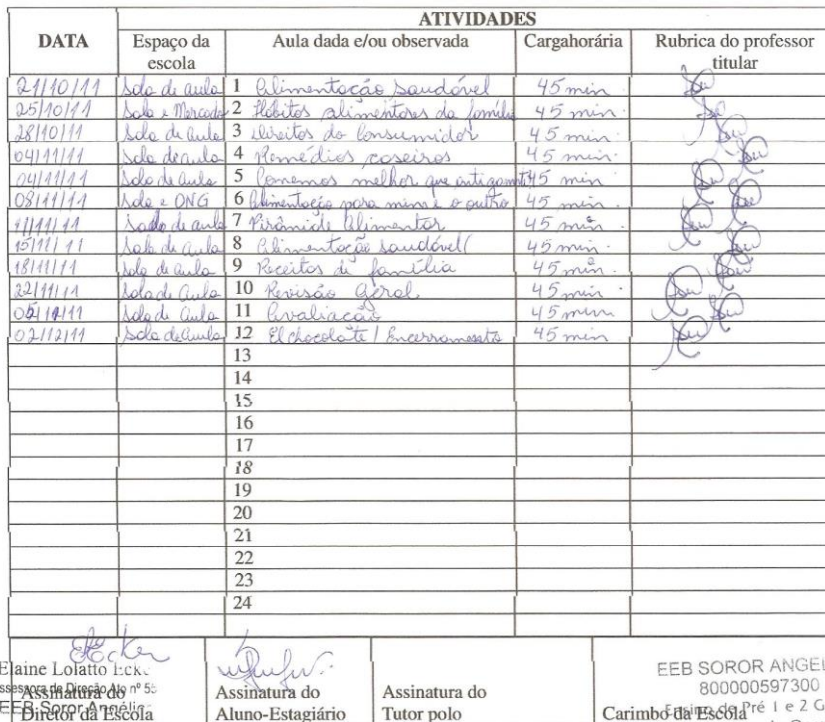 ATIVIDADES
DATA Espaço da escola Aula dada e/ou observada Cargahorária Rubrica do professor titular
21/10/11 Sala de aula 1 Alimentação saudável 45 min.
25/10/11 Sala e Mercado 2 Hábitos alimentares da família 45 min.
28/10/11 Sala de aula 3 Direitos do Consumidor 45 min.
04/11/11 Sala de aula 4 Remédios caseiros 45 min.
04/11/11 Sala de aula 5 Comemos melhor que antigamt 45 min
08/11/11 Sala e ONG 6 Alimentação para mim e o outro 45 min.
11/11/11 Sala de aula 7 Pirâmide Alimentar 45 min.
15/11/11 Sala de Aula 8 Alimentação saudável 45 min.
18/11/11 Sala de aula 9 Receitas de família 45 min.
22/11/11 Sala de Aula 10 Revisão Geral 45 min.
Sala de Aula 11 Avaliação 45 min
02/12/11 Sala de Aula 12 El chocolate / Encerramento 45 min
13
14
15
16
17
18
19
20
21
22
23
24
Elaine Lolatto
Assessora de Direção Ato nº 55
EEB Soror Angélic
Assinatura do Diretor da Escola
Assinatura do Aluno-Estagiário
Assinatura do Tutor polo
EEB SOROR ANGEL
800000597300
Ensino do Pré 1 e 2 G
Carimbo da Escola